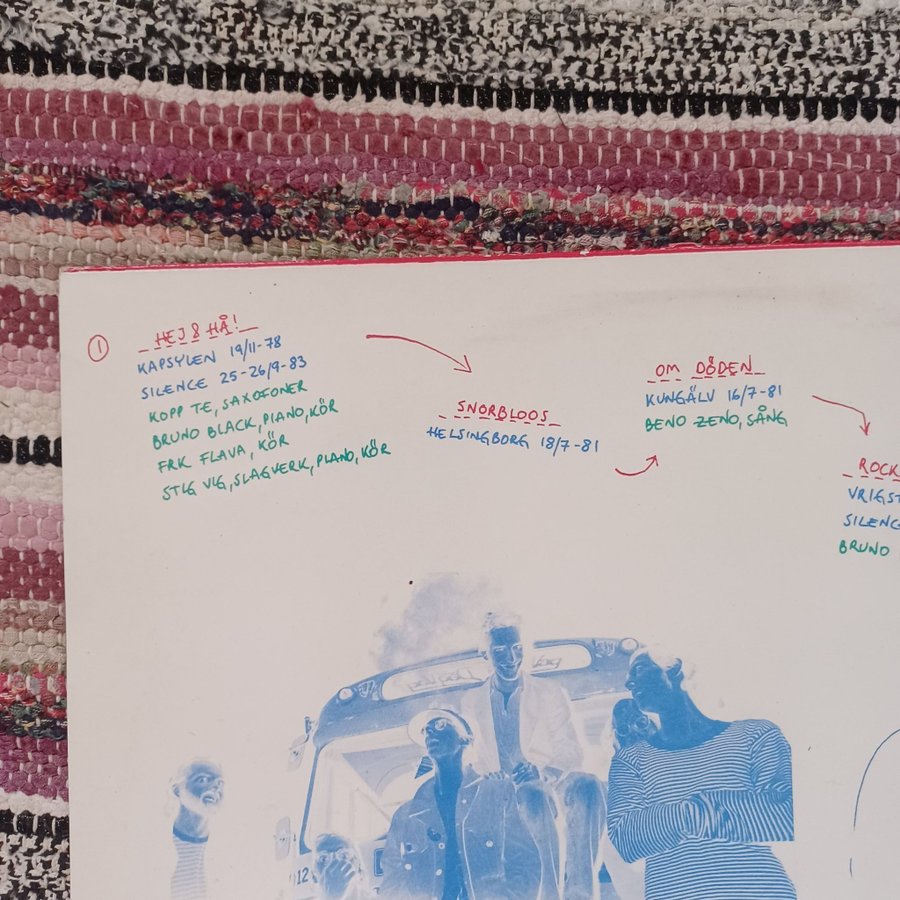 1
HEJ & HÅ!
KAPSYLEN 19/11-78
SILENCE 25-26/9-83
KOPP TE, SAXOFONER
BRUNO BLACK, PIANO, KÖR
FRK FLAVA, KÖR
STIG VIG, SLAGVERK, PIANO, KÖR
SNORBLOOS
HELSINGBORG 18/7-81
OM DÖDEN
KUNGÄLV 16/7-81
BENO ZENO, SÅNG
ROCK
VRIGST
SILENC
BRUNO
12